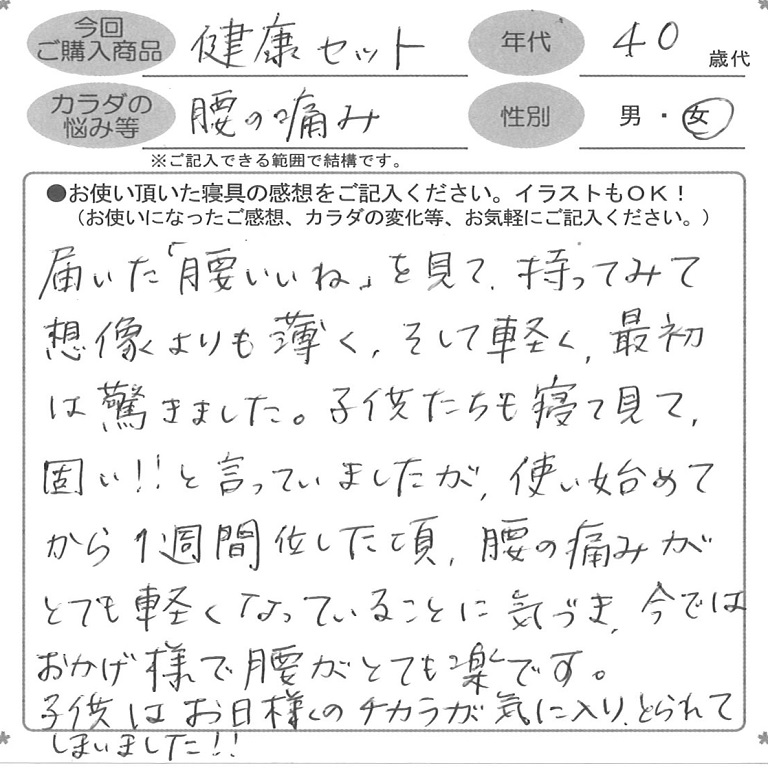 今回
ご購入商品
健康セット
年代
40
歳代
カラダの
悩み等
腰の痛み
性別
男・女
※ご記入できる範囲で結構です。
●お使い頂いた寝具の感想をご記入ください。イラストもOK！
（お使いになったご感想、カラダの変化等、お気軽にご記入ください。）
届いた「腰いいね」を見て、持ってみて
想像よりも薄く、そして軽く、最初
は驚きました。子供たちも寝て見て、
固い!!と言っていましたが、使い始めて
から1週間位した頃、腰の痛みが
とても軽くなっていることに気づき、今では
おかげ様で腰がとても楽です。
子供はお日様のチカラが気に入り、とられて
しまいました!!